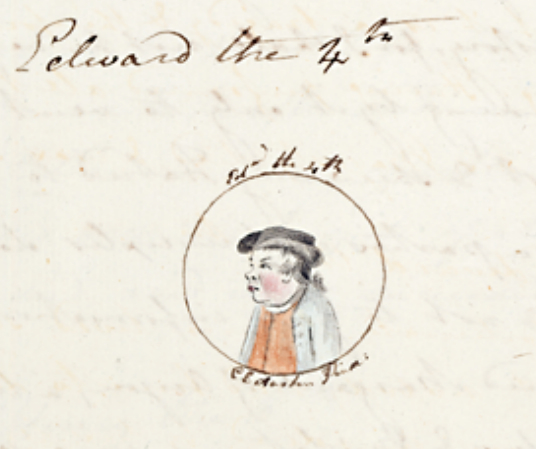 Edward the 4th
Edd the 4th
C E Austen Pinx: